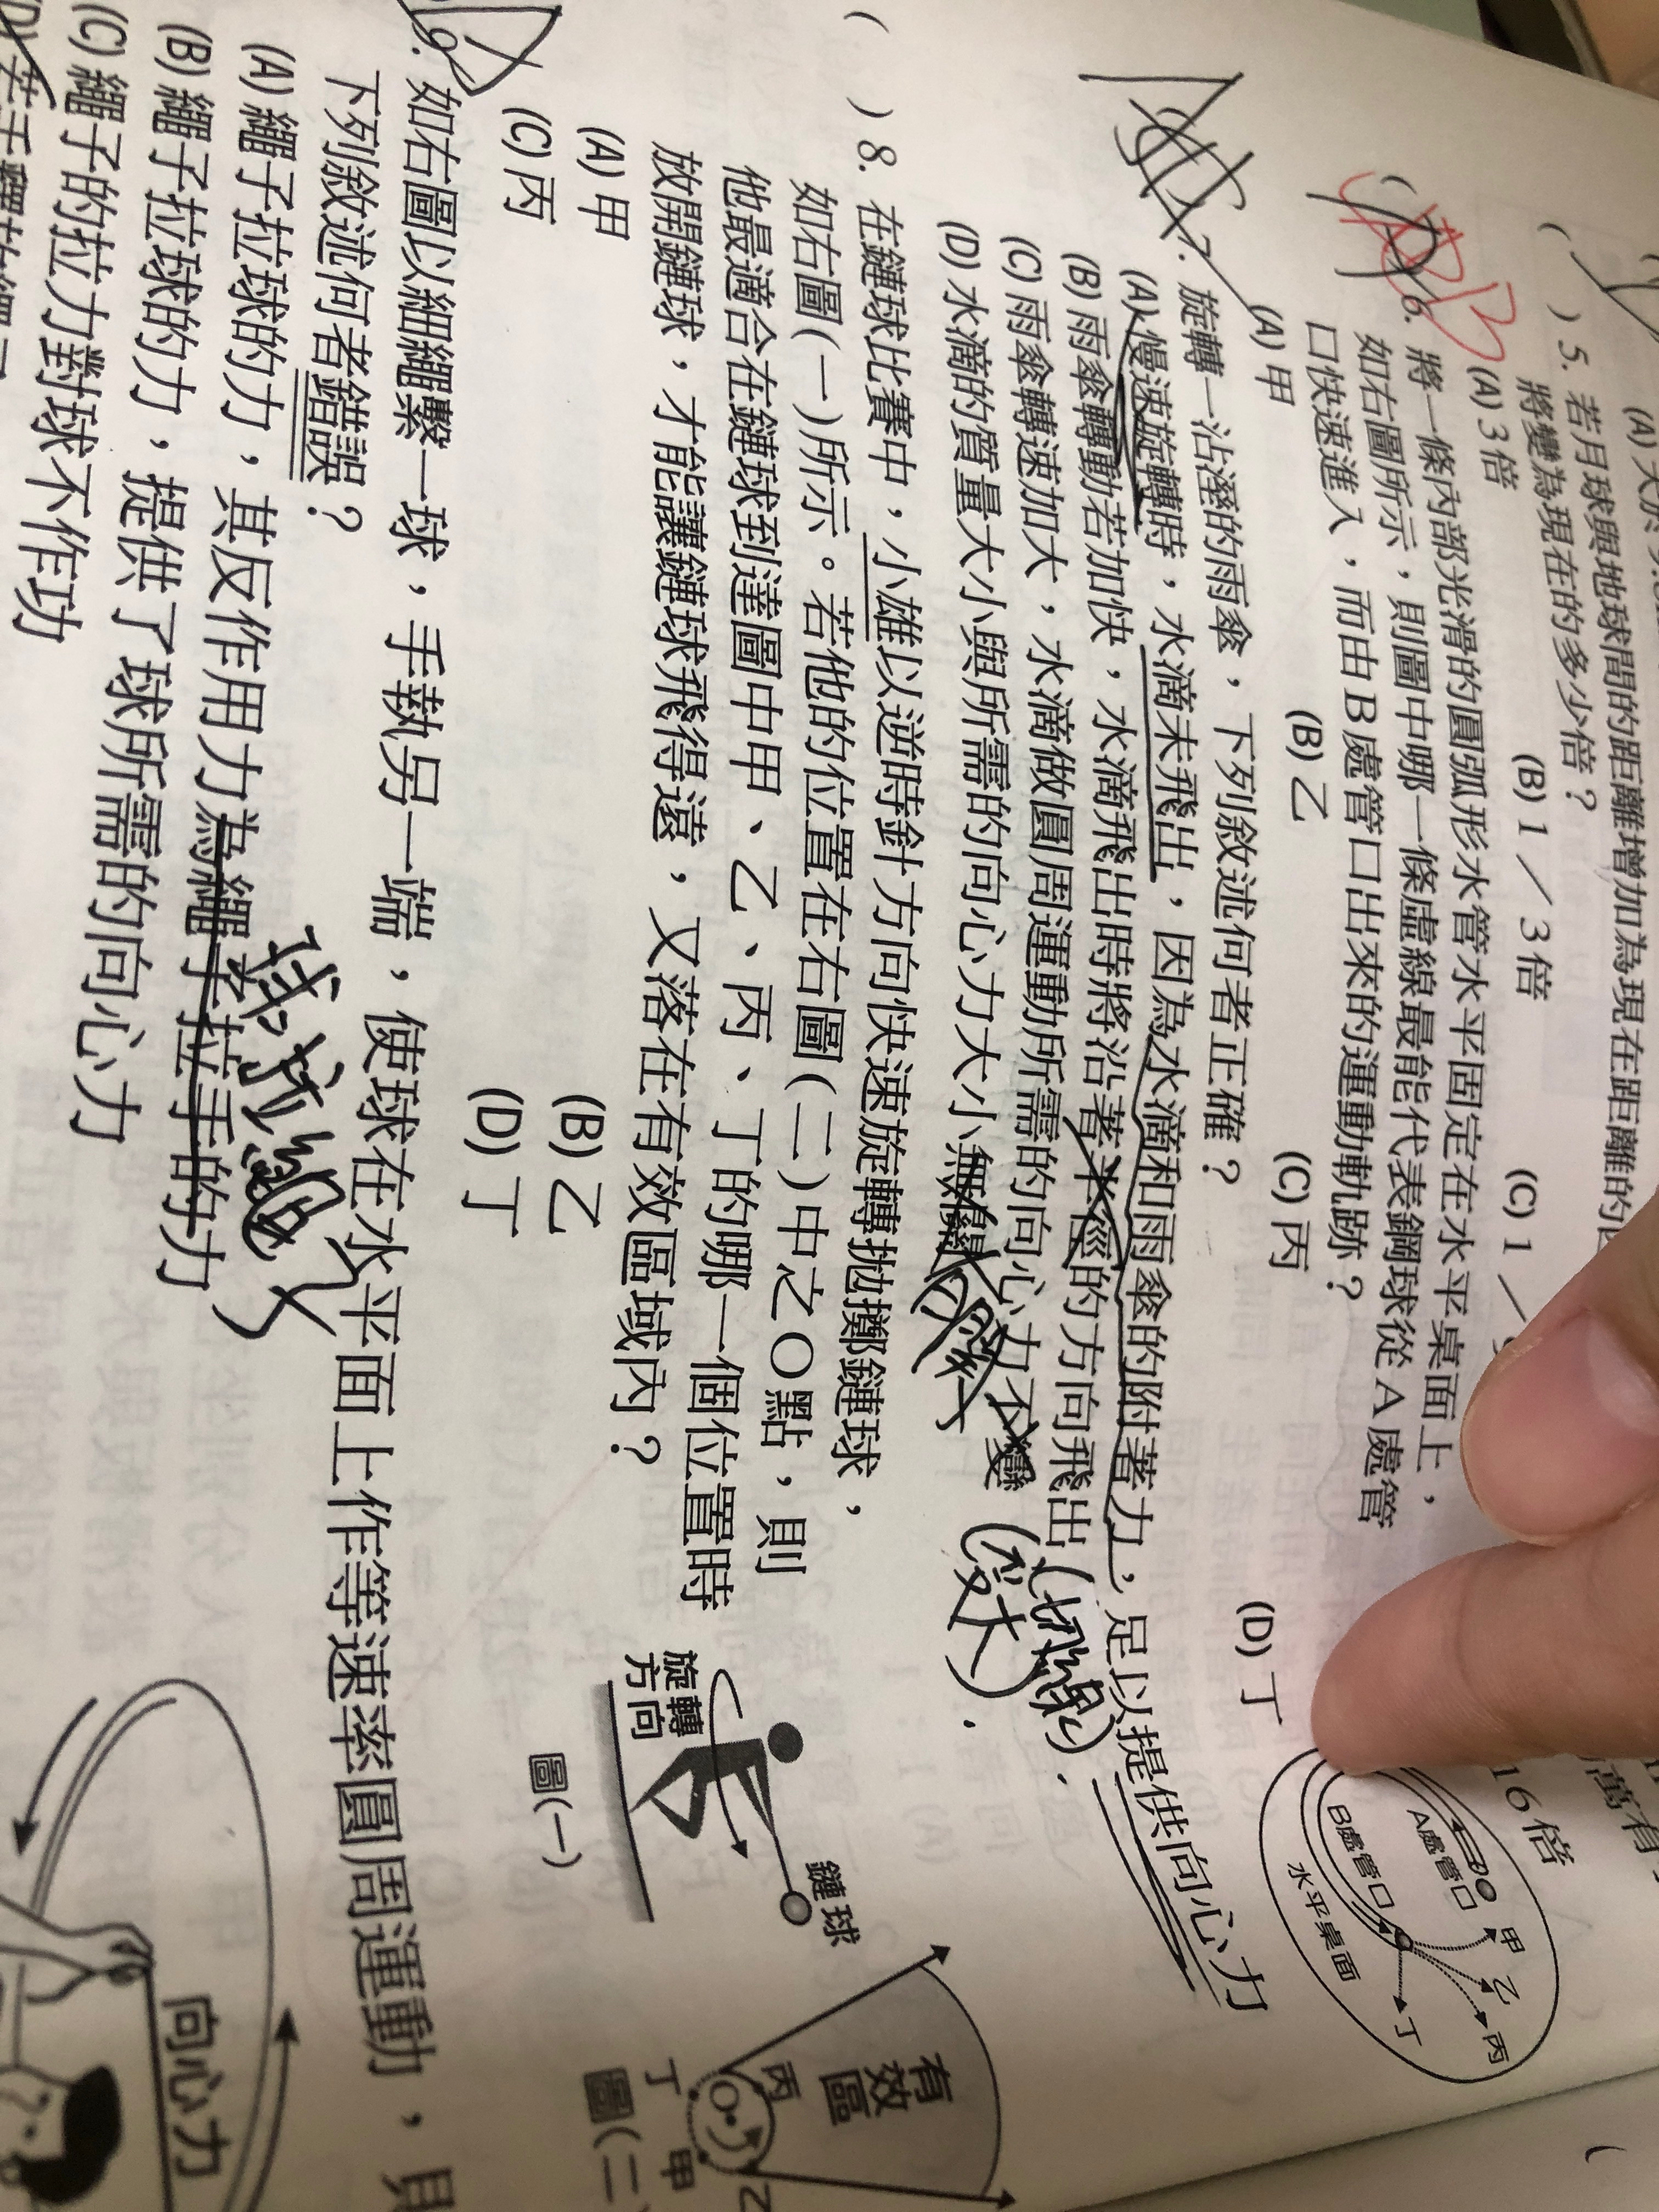 (A) 大於
) 5. 若月球與地球間的距離增加為現在距離的
將變為現在的多少倍？
(A) 3 倍 (B) 1 ／ 3 倍 (C) 1 ／
16 倍
萬有
6. 將一條內部光滑的圓弧形水管水平固定在水平桌面上，
如右圖所示，則圖中哪一條虛線最能代表鋼球從 A 處管
口快速進入，而由 B 處管口出來的運動軌跡？
(A) 甲 (B) 乙 (C) 丙 (D) 丁
A處管口
B處管口
水平桌面
甲
乙
丙
丁
7. 旋轉一沾溼的雨傘，下列敘述何者正確？
(A) 慢速旋轉時，水滴未飛出，因為水滴和雨傘的附著力，足以提供向心力
(B) 雨傘轉動若加快，水滴飛出時將沿著半徑的方向飛出 (切線)．
(C) 雨傘轉速加大，水滴做圓周運動所需的向心力不變 (變大)．
(D) 水滴的質量大小與所需的向心力大小無關
( ) 8. 在鏈球比賽中，小雄以逆時針方向快速旋轉拋擲鏈球，
如右圖(一)所示。若他的位置在右圖(二)中之Ｏ點，則
他最適合在鏈球到達圖中甲、乙、丙、丁的哪一個位置時
放開鏈球，才能讓鏈球飛得遠，又落在有效區域內？
(A) 甲 (B) 乙
(C) 丙 (D) 丁
鏈球
旋轉
方向
圖(一)
有效區
丙
O
丁
甲
乙
圖(二)
9. 如右圖以細繩繫一球，手執另一端，使球在水平面上作等速率圓周運動，則
下列敘述何者錯誤？
(A) 繩子拉球的力，其反作用力為繩子拉手的力
(B) 繩子拉球的力，提供了球所需的向心力
(C) 繩子的拉力對球不作功
(D) 若手
向心力